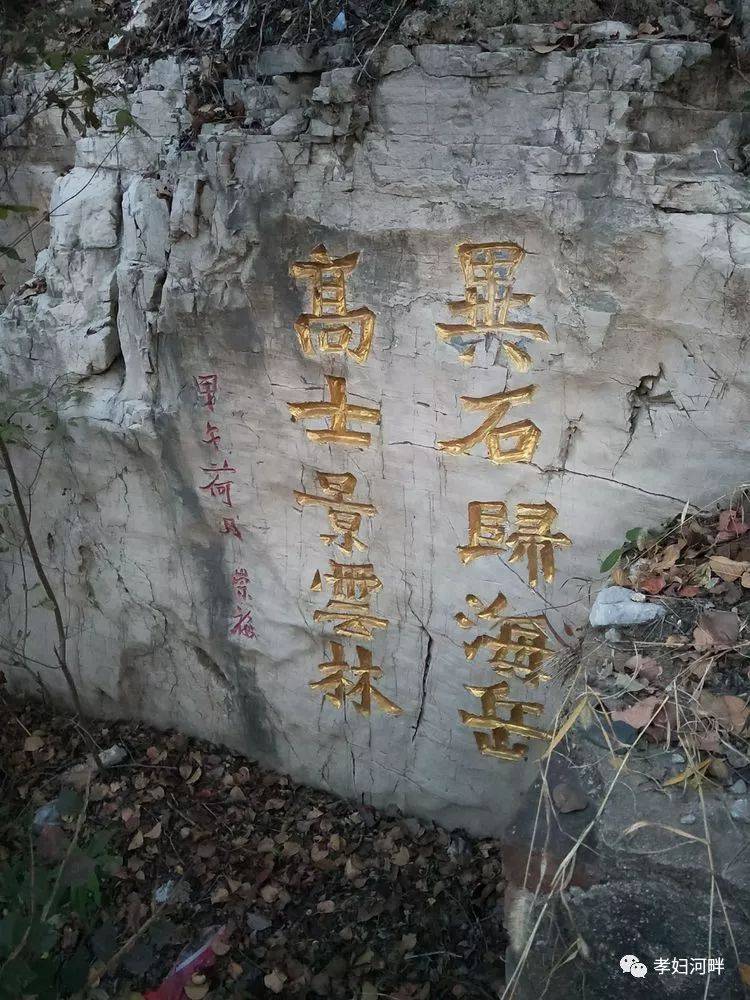 異石歸海岳
高士景雲林
甲午荷月 崇福
孝妇河畔